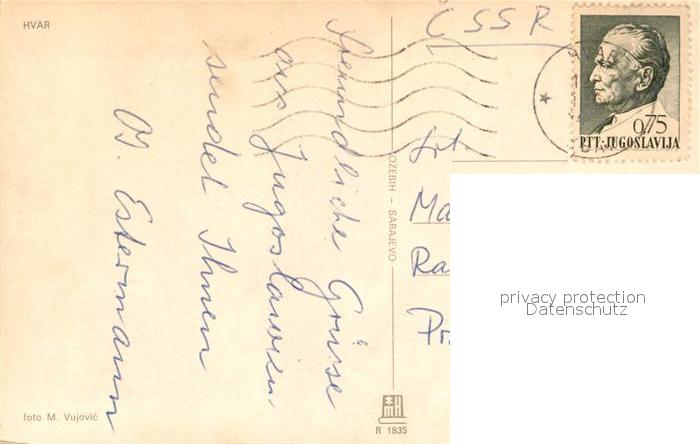 HVAR
Freundliche Grüsse
aus Jugoslawien
sendet Ihnen
O. Estermann
ČSSR
Frl.
Ma
Ra
Pr
0,75
PTT·JUGOSLAVIJA
OZEBIH – SARAJEVO
foto M. Vujović
R 1835
privacy protection
Datenschutz